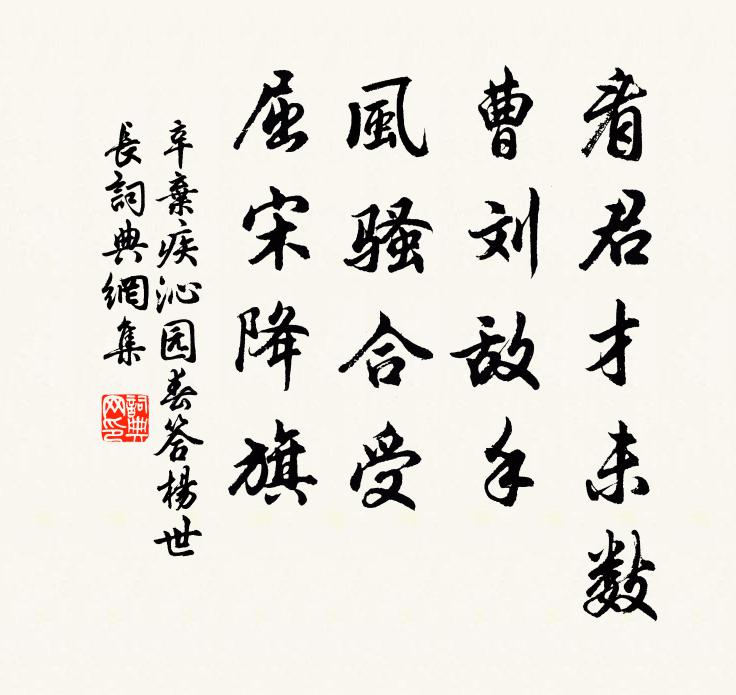 看君才未数
曹刘敌手
風骚合受
屈宋降旗
辛棄疾沁园春答楊世
長詞典網集
詞典網印